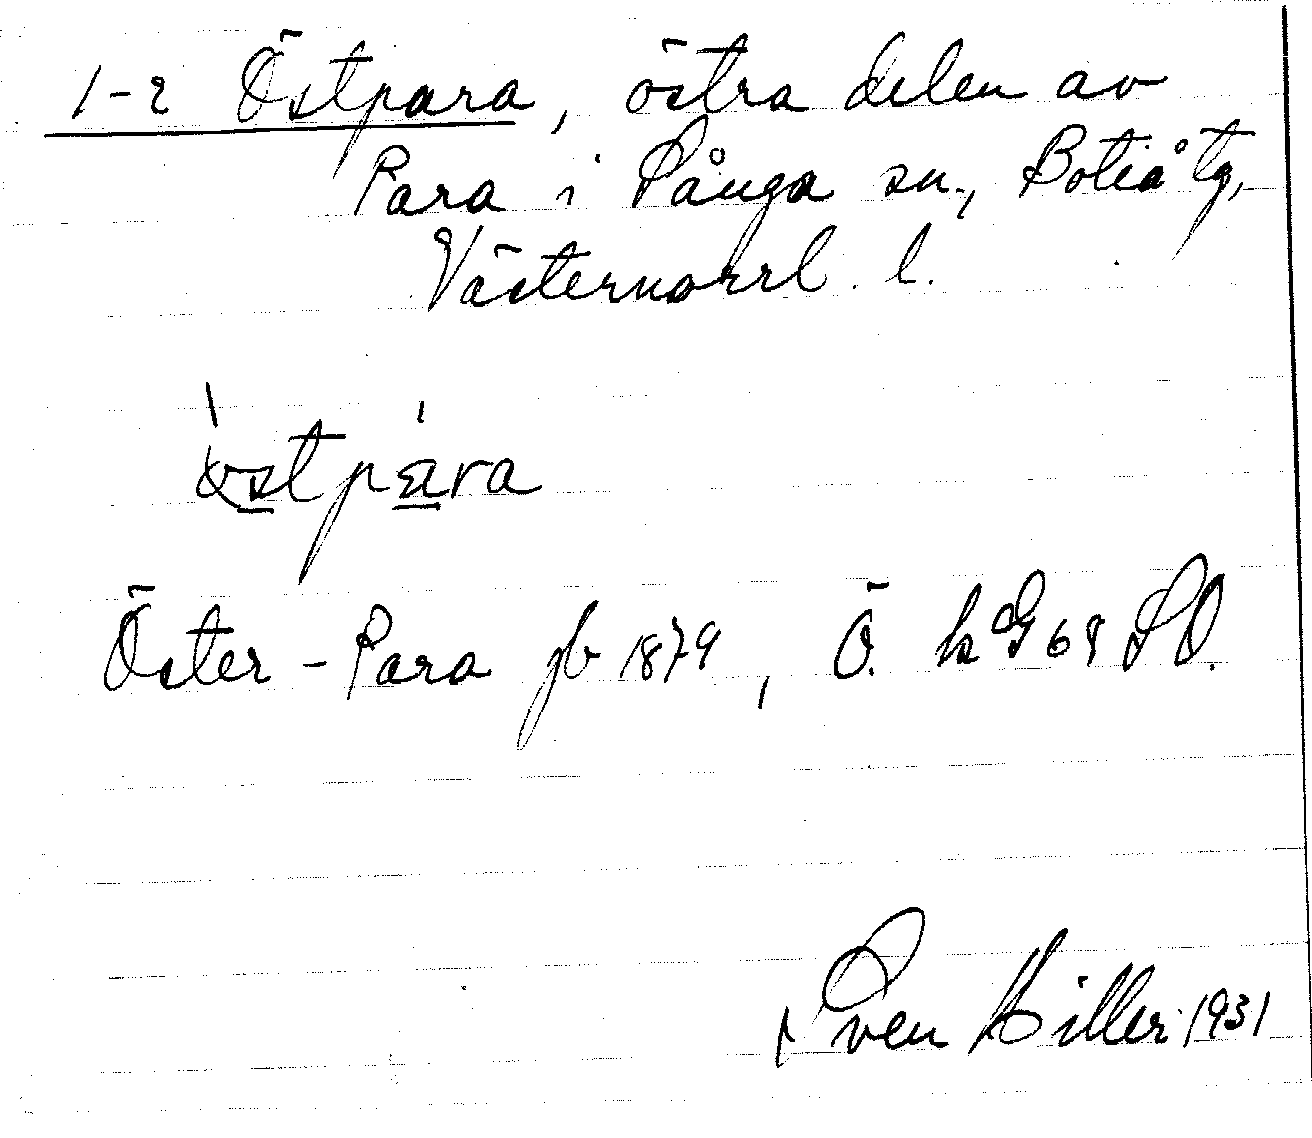 1-2 Östpara, östra delen av
Para i Sånga sn., Boteå tg,
Västernorrl. l.
Öster-Para jb 1879, Ö. k G 68 SO.
Sven Hiller 1931